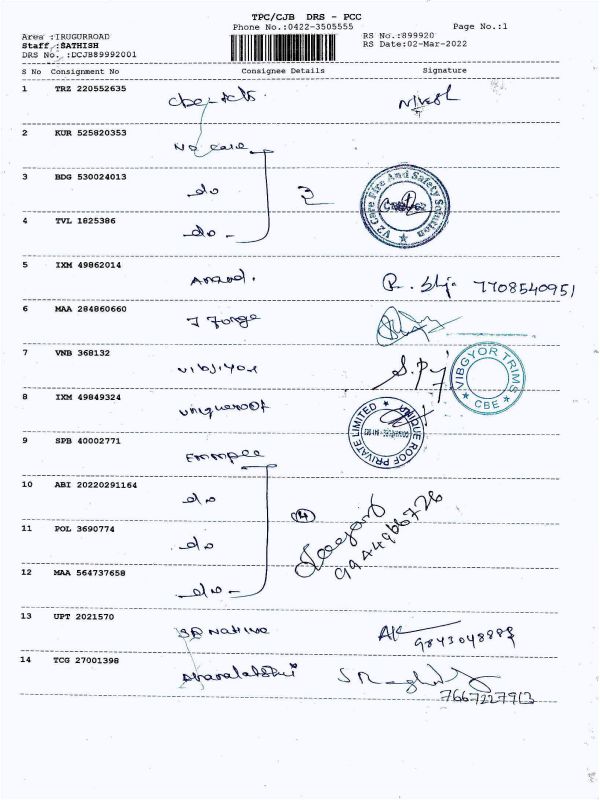 TPC/CJB DRS - PCC
Phone No.:0422-3505555
Page No.:1
Area :IRUGURROAD
RS No.:899920
Staff :SATHISH
RS Date:02-Mar-2022
DRS No. :DCJB89992001
S No Consignment No Consignee Details Signature
1 TRZ 220552635
2 KUR 525820353
3 BDG 530024013 do 3
V2 Care Fire And Safety Solution
4 TVL 1825386 do
5 IXM 49862014
7708540951
6 MAA 284860660
J Forge
7 VNB 368132
VIBGYOR TRIMS
CBE
8 IXM 49849324
uniqueroof
UNIQUE ROOF PRIVATE LIMITED
9 SPB 40002771
Emmpee
10 ABI 20220291164
do
4
11 POL 3690774
do
9944966726
12 MAA 564737658
do
13 UPT 2021570
SP Native
AK
9843048888
14 TCG 27001398
7667227913